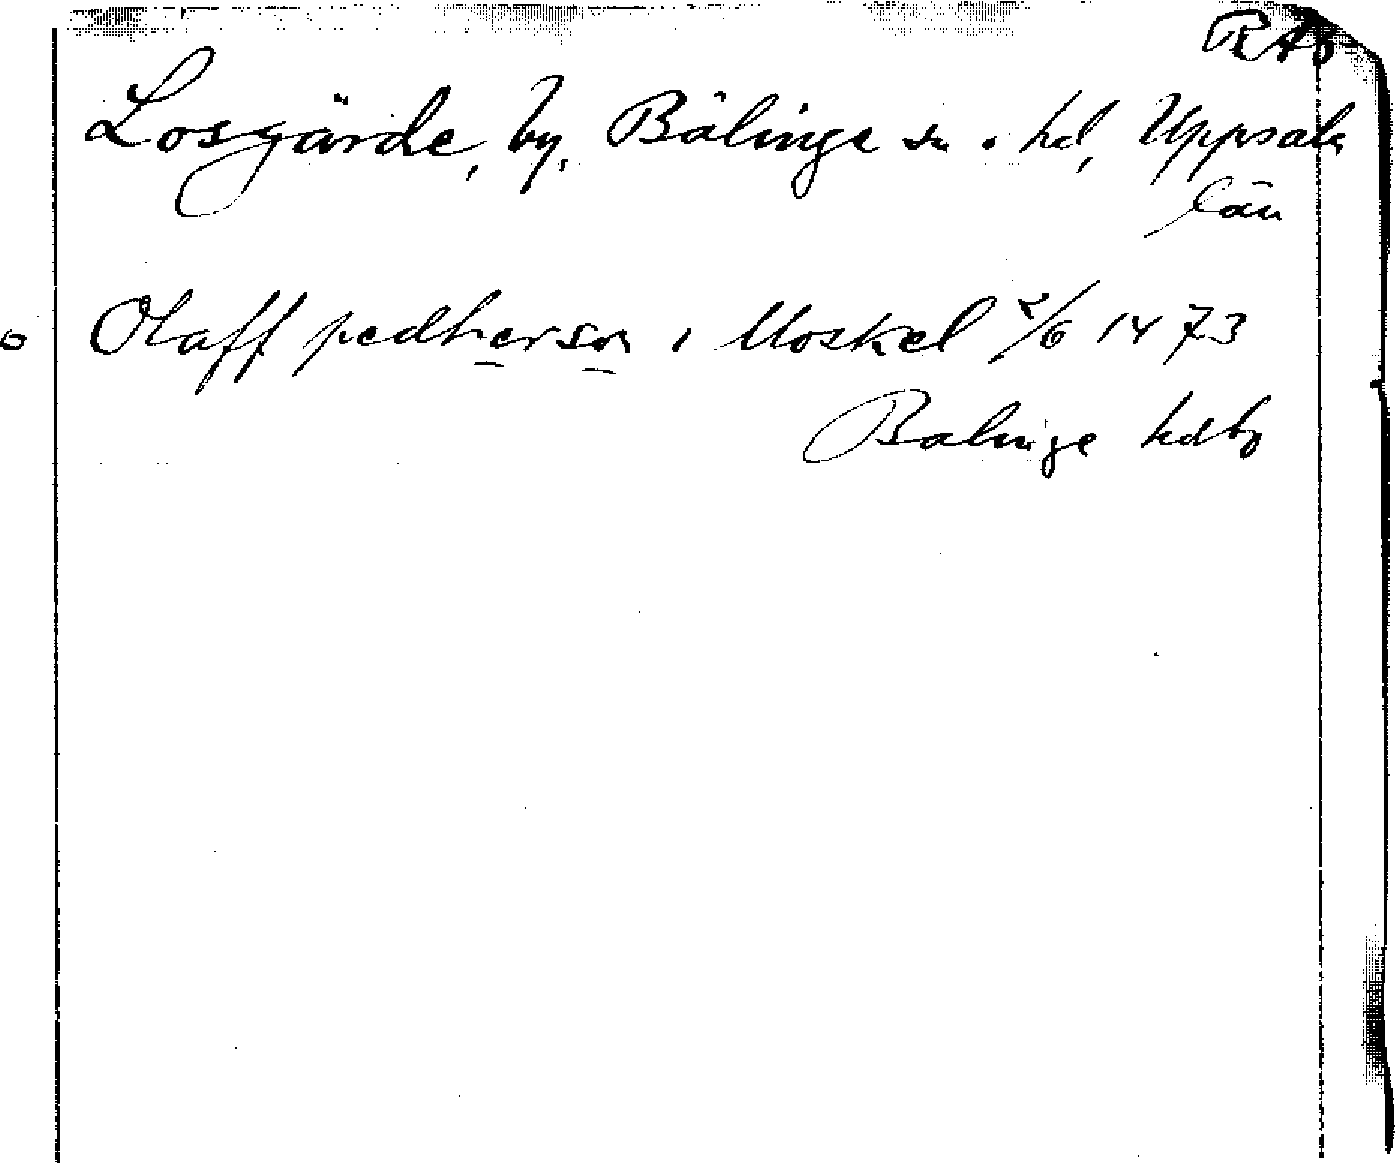 RAÖ
Losgärde, by, Bälinge sn o. hd, Uppsala
län
Olaff pedherson i Moskel 2/6 1473
Balinge hdby